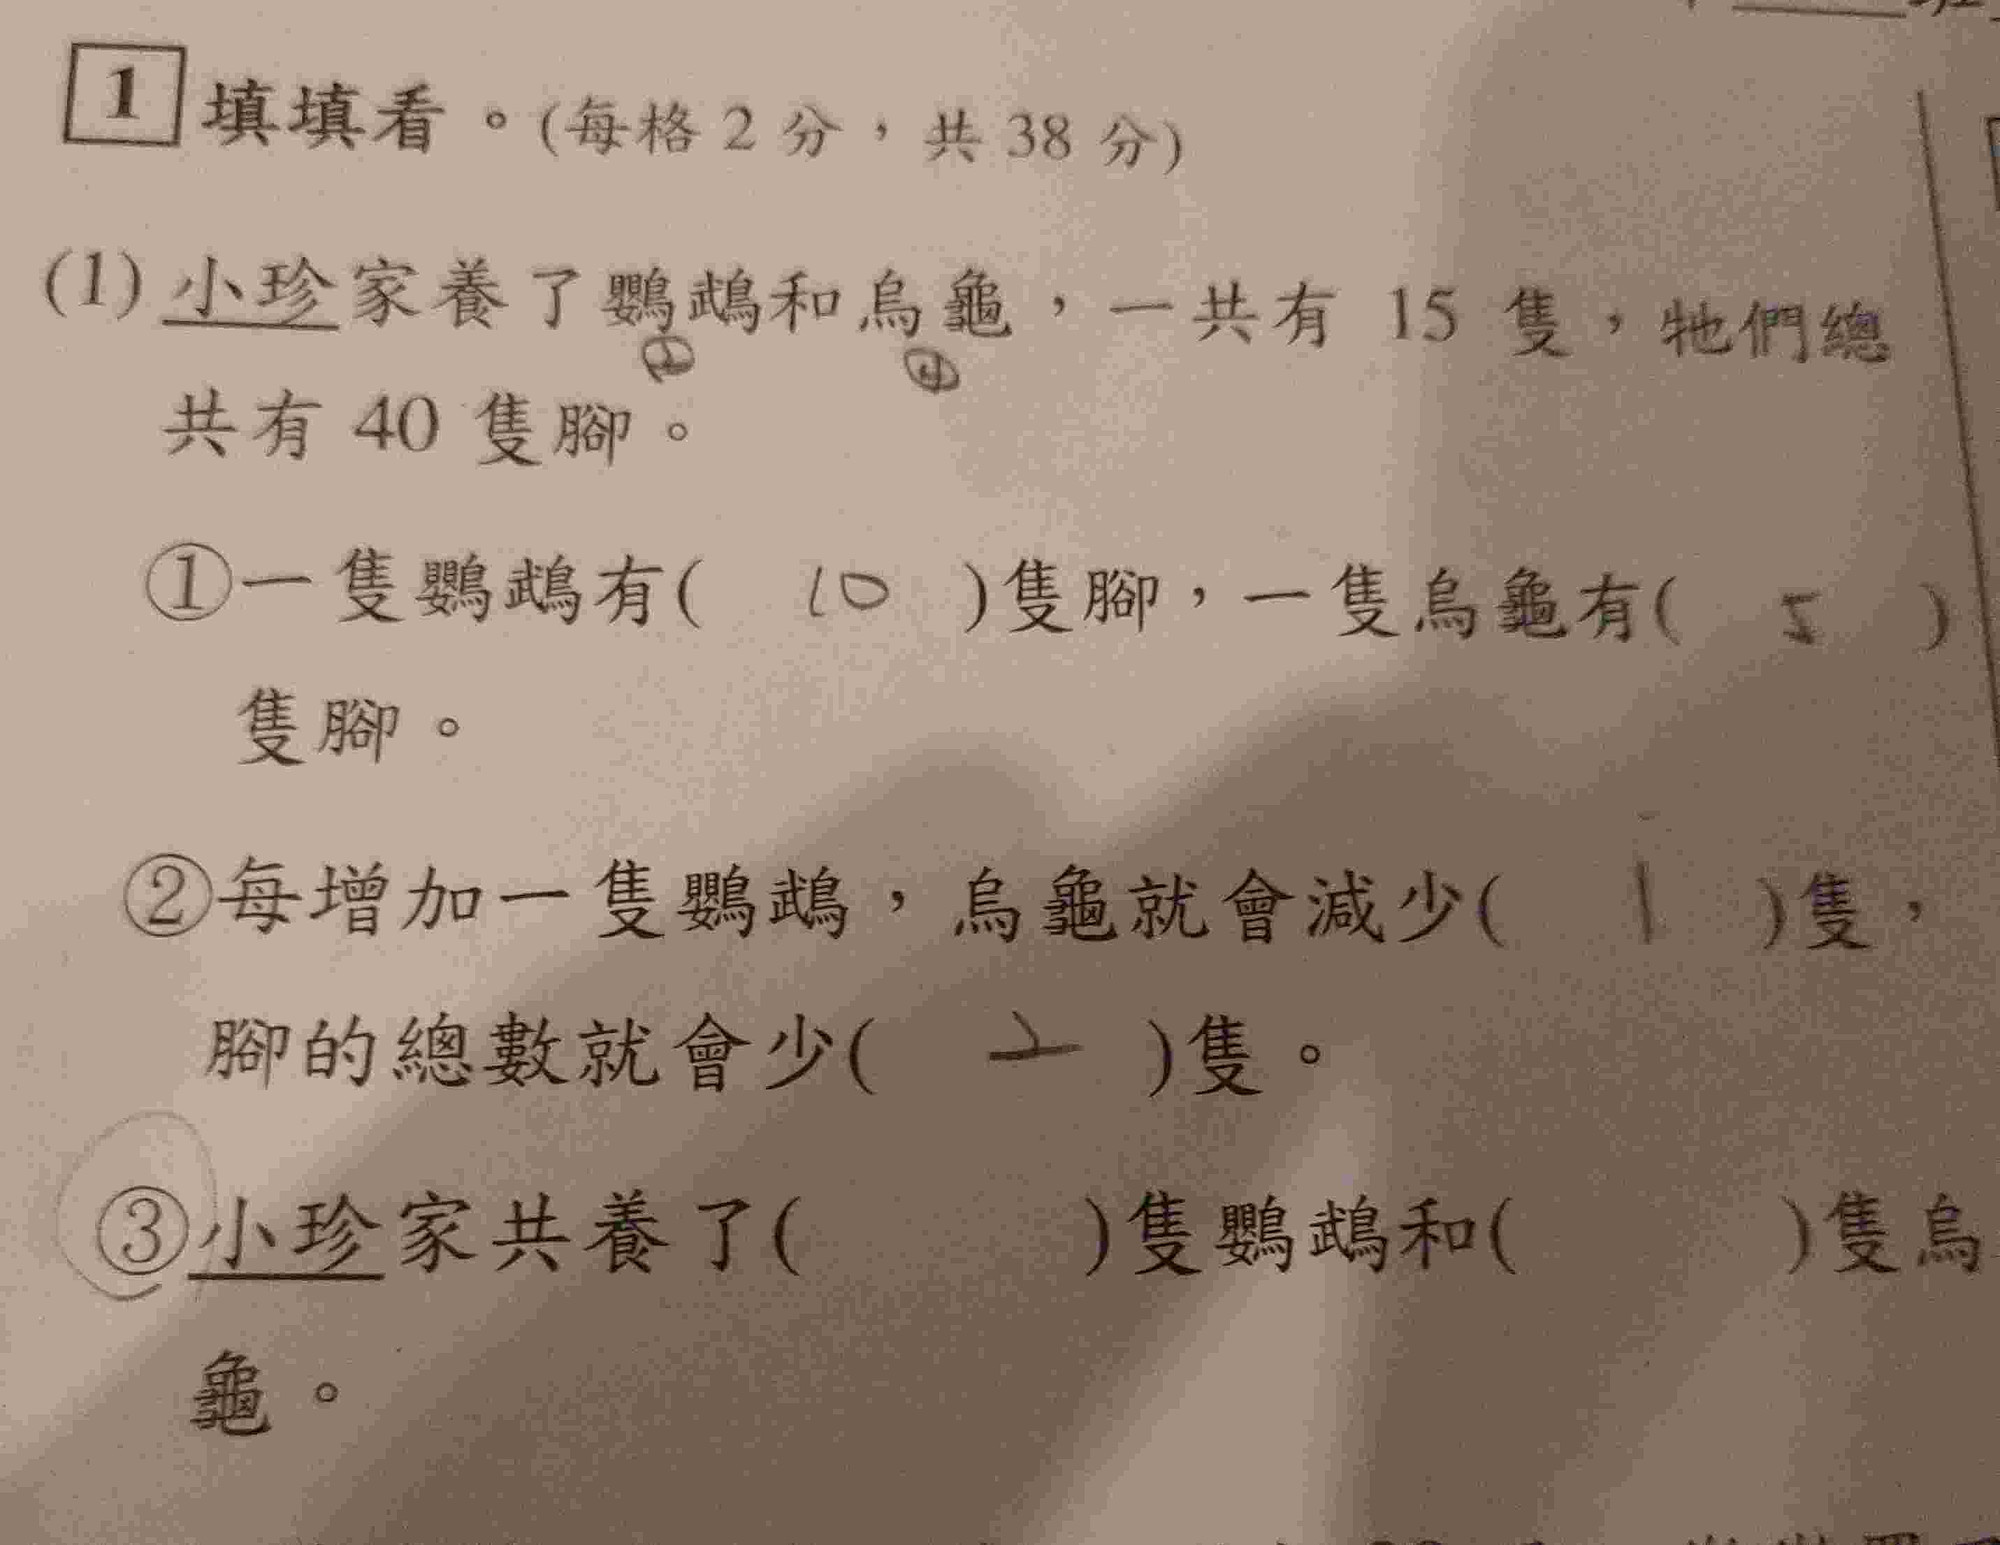 1 填填看。(每格 2 分，共 38 分)
(1) 小珍家養了鸚鵡和烏龜，一共有 15 隻，牠們總
② ④
共有 40 隻腳。
①一隻鸚鵡有( 10 )隻腳，一隻烏龜有( 5 )
隻腳。
②每增加一隻鸚鵡，烏龜就會減少( 1 )隻，
腳的總數就會少( 2 )隻。
③小珍家共養了( )隻鸚鵡和( )隻烏
龜。